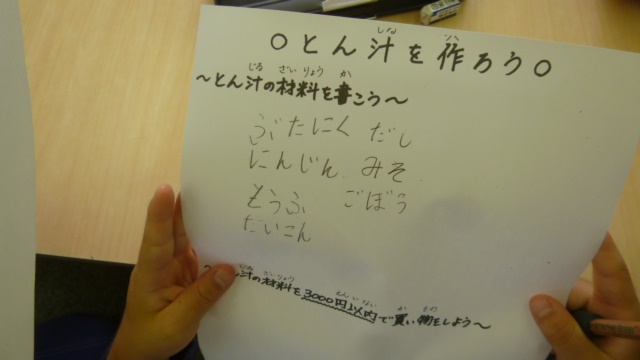 ○とん汁を作ろう○
～とん汁の材料を書こう～
ぶたにく だし
にんじん、みそ
とうふ ごぼう
だいこん
～とん汁の材料を3000円以内で買い物をしよう～